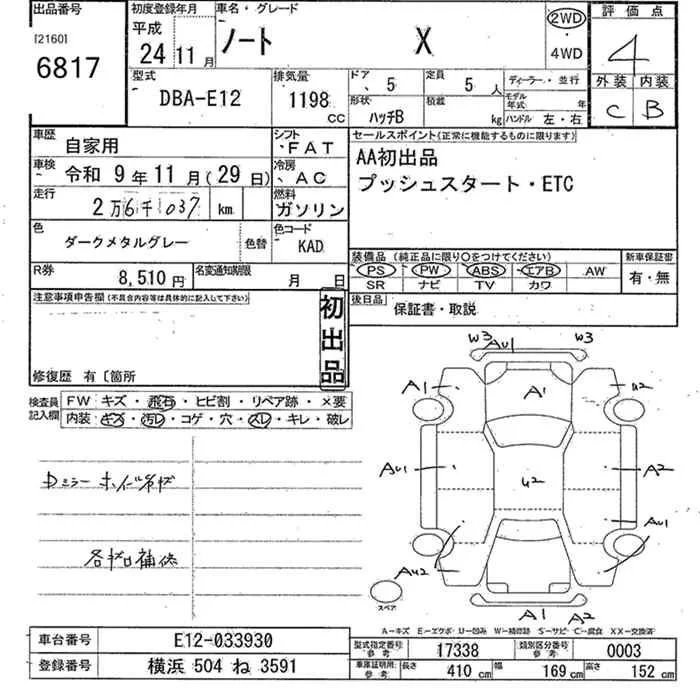 出品番号 初度登録年月 車名・グレード 評価点
[2160] 平成 ノート X 2WD 4
6817 24年11月 4WD 外装 内装
型式 排気量 ドア、5 定員 5人 ディーラー・並行 C B
DBA-E12 1198cc 形状、ハッチB 積載 kg モデル年式 年 ハンドル 左・右
車歴 自家用 シフト、FAT セールスポイント(正常に機能するものに限ります)
車検 令和 9年11月(29日) 冷房、AC AA初出品
走行 2万6千037 km 燃料 ガソリン プッシュスタート・ETC
色 ダークメタルグレー 色替 色コード KAD
装備品 (純正品に限り〇をつけてください) 新車保証書
PS PW ABS エアB AW 有・無
SR ナビ TV カワ
R券 8,510円 名変通知期限 月 日
後日品 保証書・取説
注意事項申告欄(不具合内容等は具体的に記入して下さい) 初出品
修復歴 有〔箇所
検査員記入欄 FW キズ・飛石・ヒビ割・リペア跡・×要
内装・キズ・汚レ・コゲ・穴・スレ・キレ・破レ
W3 AU1 W3
A1 A1 U2
AU1 U2 A2
AU1
AU2
A1 A2
スペア
Dミラー ホイルキズ
各キロ補修
A-キズ E-エクボ U-凹み W-補修跡 S-サビ C-腐食 XX-交換済
車台番号 E12-033930 型式指定番号 参考 17338 類別区分番号 参考 0003
登録番号 横浜 504 ね 3591 車庫証明用 参考 長さ 410cm 幅 169cm 高さ 152cm